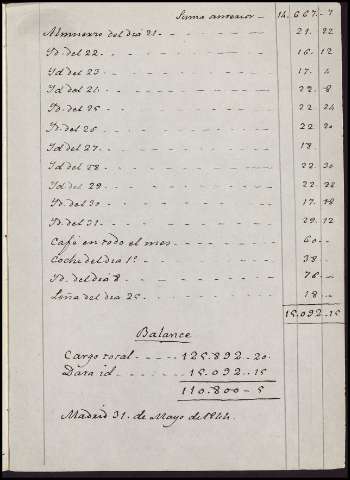 Suma anterior - 14.667 - 7
Almuerzo del dia 21 - 21 . 22
Id. del 22 - 16 . 12
Id del 23 - 17 . 4
Id del 24 - 22 . 8
Id. del 25 - 22 . 24
Id. del 26 - 22 . 20
Id. del 27 - 18 -
Id del 28 - 22 . 30
Id del 29 - 22 . 28
Id. del 30 - 17 . 18
Id. del 31 - 29 . 12
Café en todo el mes - 60 -
Coche del dia 1º - 38 -
Id. del dia 8 - 76 -
Leña del dia 25 - 18 -
15.092 - 15
Balance
Cargo total - 125.892 - 20
Data id - 15.092 - 15
110.800 - 5
Madrid 31. de Mayo de 1844.